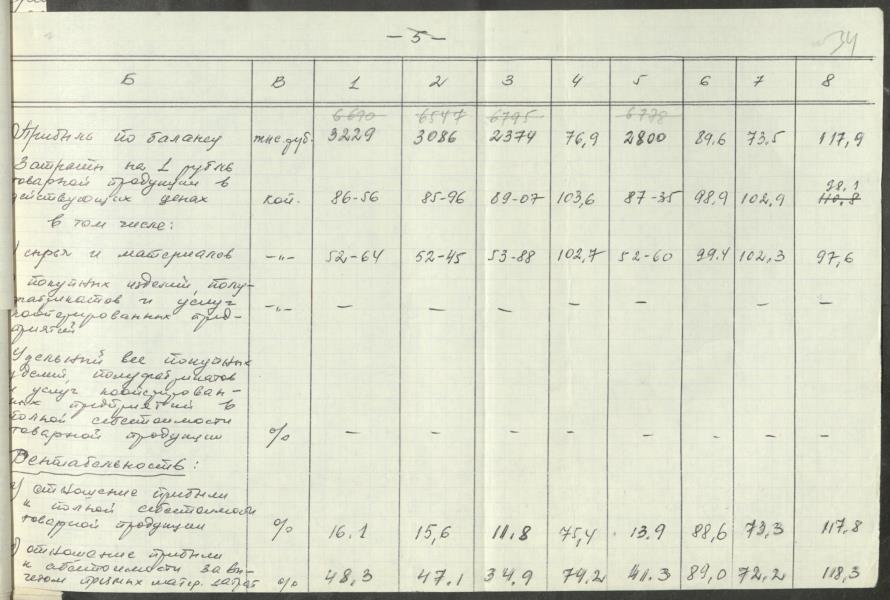 - 5 -
34
Б В 1 2 3 4 5 6 7 8
6690 6547 6795 6788
Прибыль по балансу тыс.руб. 3229 3086 2374 76,9 2800 89.6 73.5 117,9
Затраты на 1 рубль
товарной продукции в 98.1
действующих ценах коп. 86-56 85-96 89-07 103,6 87-35 98,9 102,9 110.8
в том числе:
сырья и материалов -"- 52-64 52-45 53-88 102,7 52-60 99.4 102,3 97,6
покупных изделий, полу-
фабрикатов и услуг
кооперированных пред- -"- - - - - - - -
приятий
Удельный вес покупных
изделий полуфабрикатов
и услуг кооперирован-
ных предприятий в
полной себестоимости
товарной продукции % - - - - - - - -
Рентабельность:
а) отношение прибыли
к полной себестоимости
товарной продукции % 16.1 15,6 11.8 75,4 13.9 88,6 73,3 117.8
б) отношение прибыли
к себестоимости за вы-
четом прямых матер. затрат % 48,3 47.1 34.9 74.2 41.3 89,0 72.2 118,3